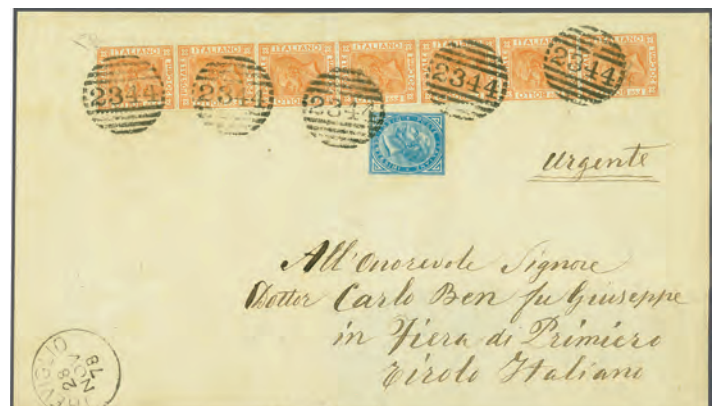 ITALIANO ITALIANO ITALIANO ITALIANO ITALIANO ITALIANO ITALIANO
2344 2344 2344 2344 2344
Urgente
All'Onorevole Signore
Dottor Carlo Ben fu Giuseppe
in Fiera di Primiero
Tirolo Italiano
28
NOV
78